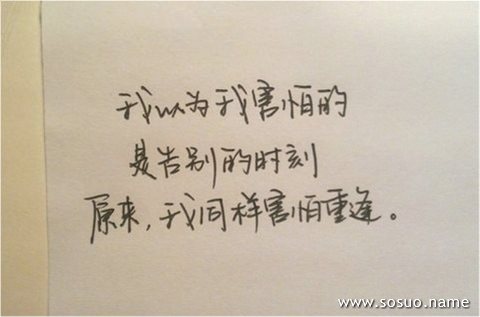 我以为我害怕的
是告别的时刻
原来,我同样害怕重逢。
www.sosuo.name